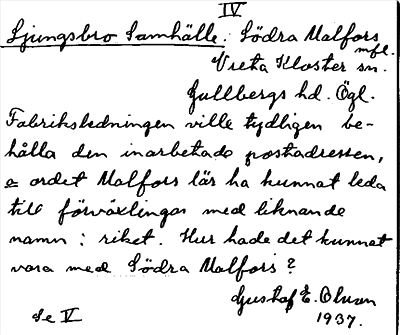 IV
Ljungsbro Samhälle. Södra Malfors
mfl.
Vreta Kloster sn.
Gullbergs hd. Ögl.
Fabriksledningen ville tydligen be-
hålla den inarbetade postadressen,
o ordet Malfors lär ha kunnat leda
till förväxlingar med liknande
namn i riket. Hur hade det kunnat
vara med Södra Malfors?
Gustaf E. Olsson
Se V 1937.